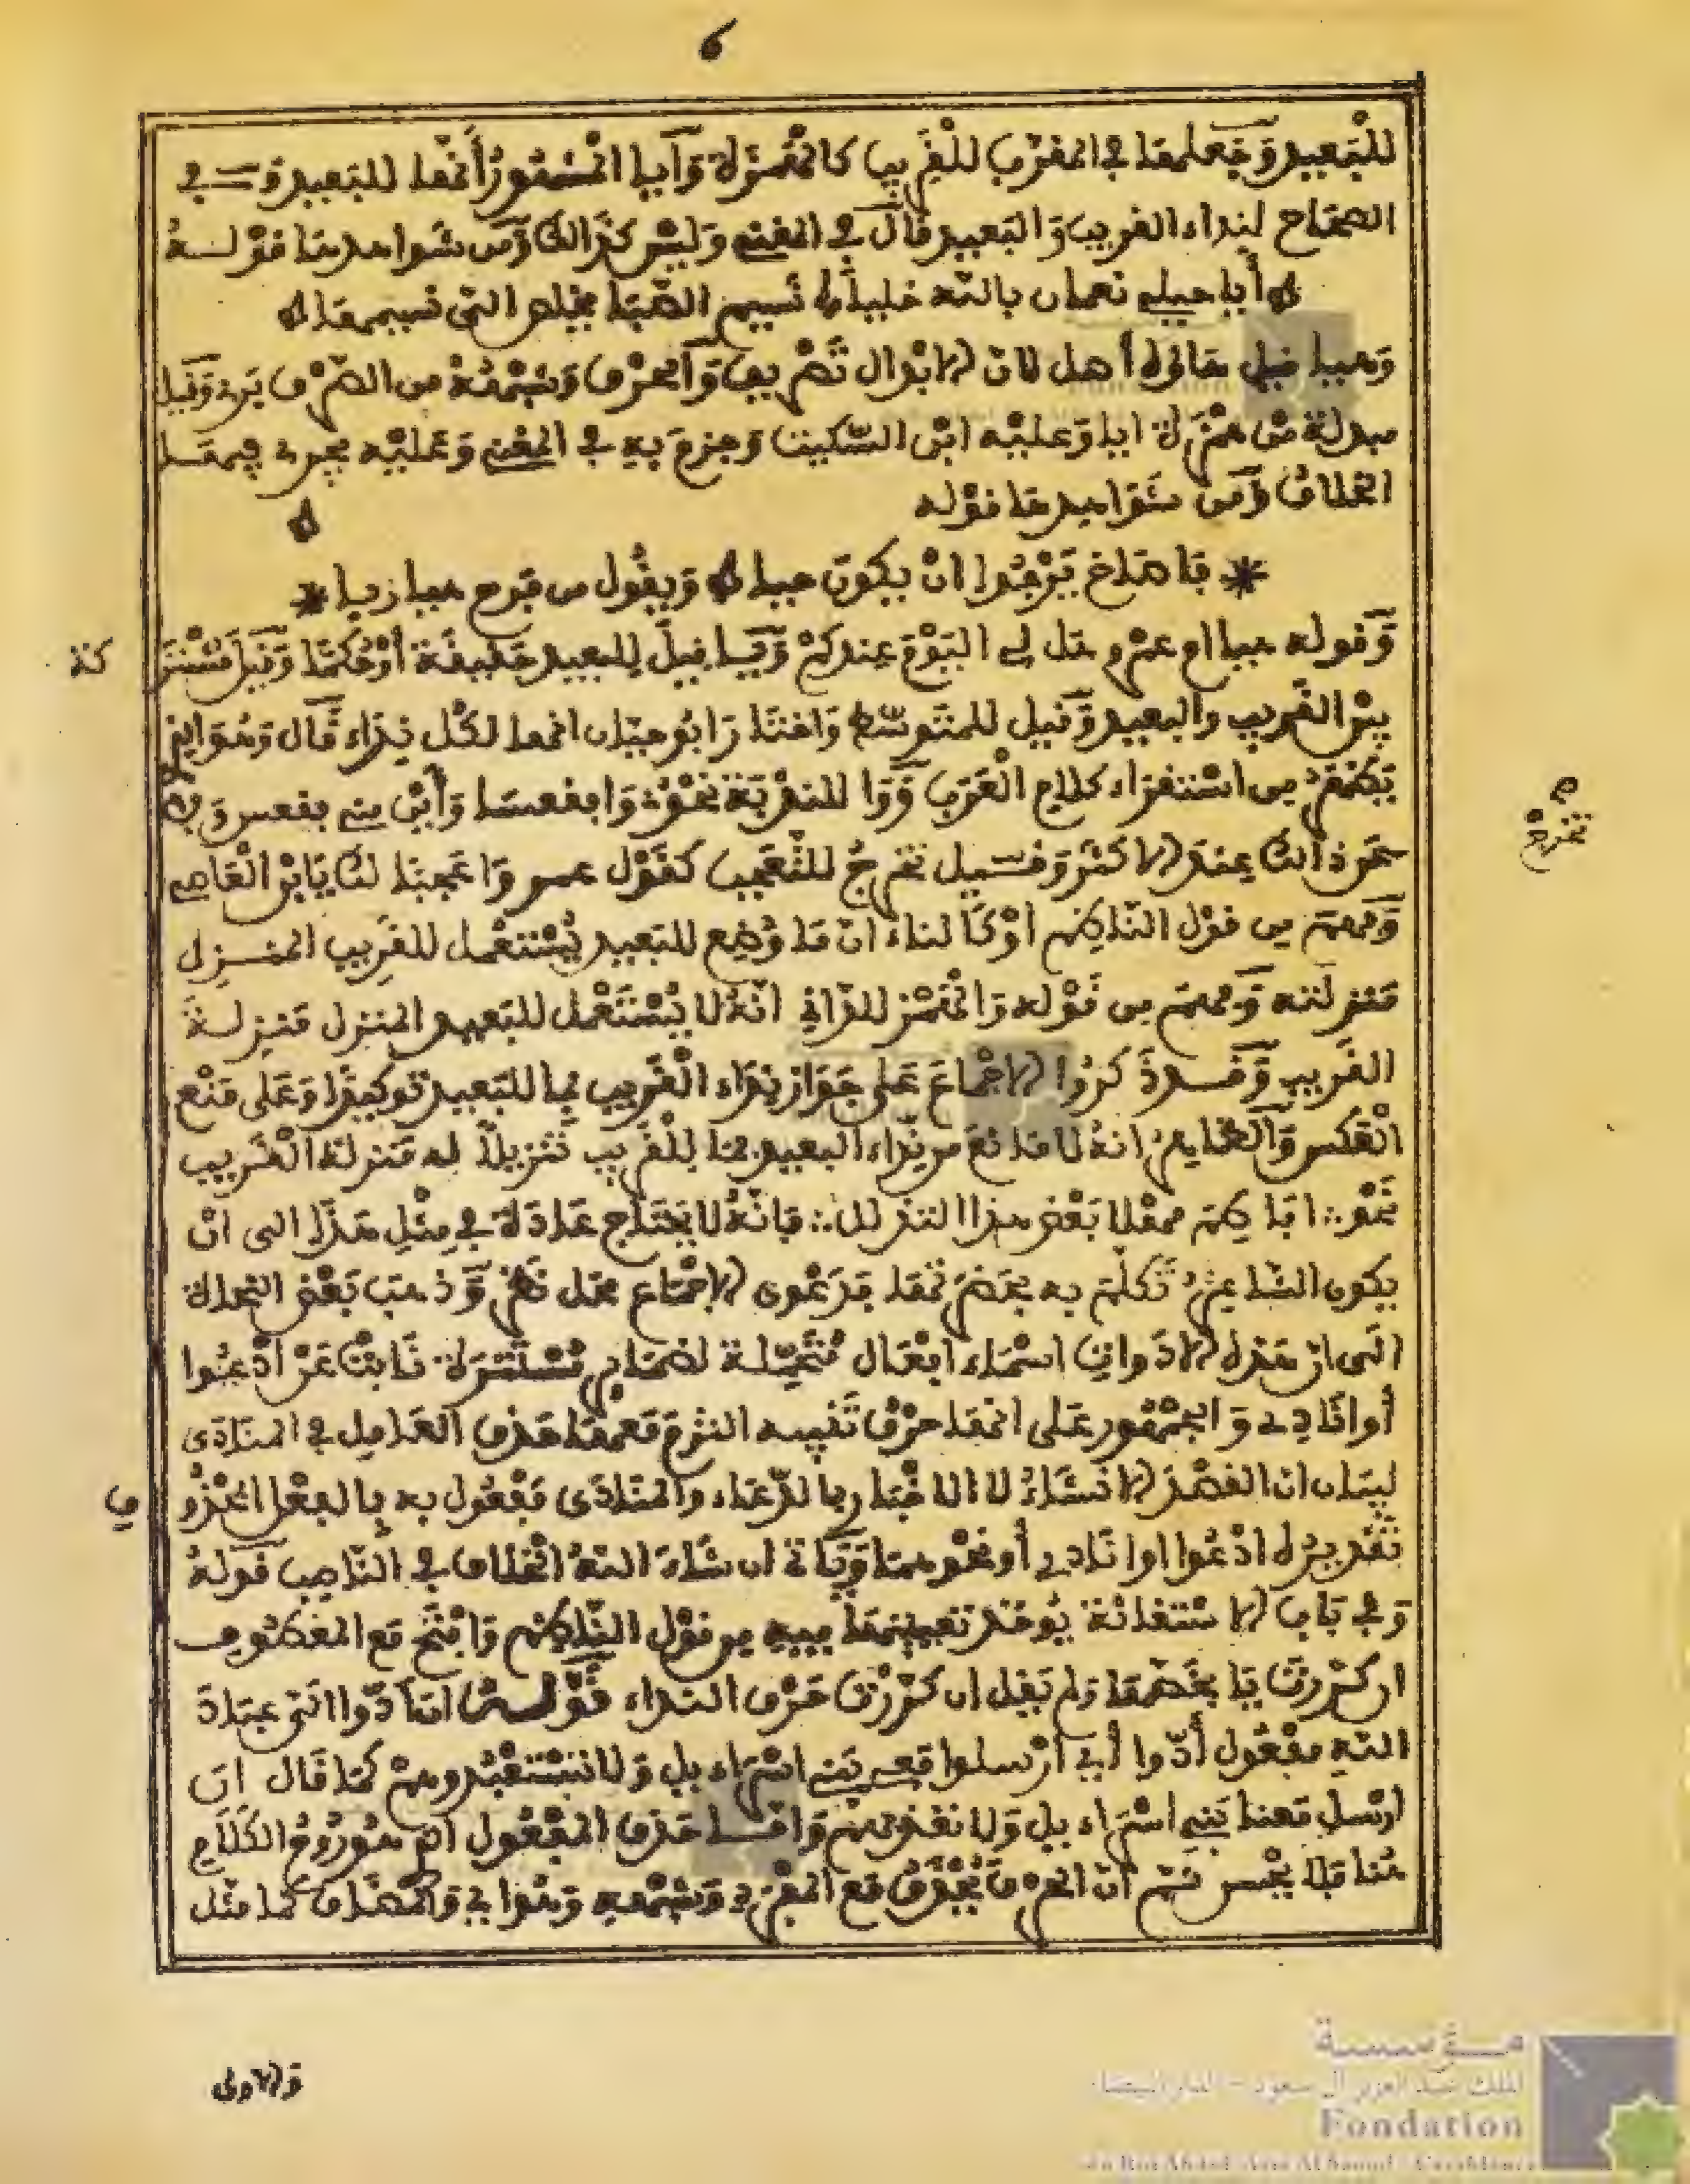 6
للبعيد وجعلها في المقرب للقريب كالهمزة وأيا المشهور أنها للبعيد و في
الصحاح لنداء القريب والبعيد قال في المغني وليس كذالك ومن شواهدها قوله
أيا جبلي نعمان بالله خليا نسيم الصبا يخلص التي نسيمها
وهيا قيل هاؤه أصل لان الابدال تصريف والحرف وشبهه من الصرف بري وقيل
مبدلة من همزة ايا وعليه ابن السكيت وجزم به في المغني وعليه يجري فيها
الخلاف ومن شواهدها قوله
* فاصاخ يرجوا ان يكون حيا ويقول من فرح هيا ربا *
وقوله هيا ام عمرو هل لي اليوم عندكم ويا قيل للبعيد حقيقة أو حكما وقيل مشتر
كة
بين القريب والبعيد وقيل للمتوسط واختار ابو حيان انها لكل نداء قال وهو الذي
يظهر من استقراء كلام العرب ووا للندبة نحو وافقعسا وأين مني فقعس ولا
تخرج
عن ذالك عند الاكثر وقيل تخرج للتعجب كقول عمر واعجبا لك يابن العاصي
وفهم من قول الناظم أو كالناء ان ما وضع للبعيد يستعمل للقريب المنزل
منزلته وفهم من قوله والهمز للداني انه لا يستعمل للبعيد المنزل منزلة
القريب وقد ذكروا الاجماع على جواز نداء القريب بما للبعيد توكيدا وعلى منع
العكس والظاهر انه لا مانع من نداء البعيد بما للقريب تنزيلا له منزلة القريب
نحو :. افاطم مهلا بعض هذا التدلل :. فإنه لا يحتاج عادة في مثل هذا الى ان
يكون الشاعر تكلم به بحضرتها فدعوى الاجماع محل نظر وذهب بعض النحاة
الى ان هذه الادوات اسماء افعال متحملة لضمائر مستترة نابت عن ادعوا
أو انادي والجمهور على انها حرف تنبيه التزم معها حذف العامل في المنادى
لبيان ان القصد الانشاء لا الاخبار بالدعاء والمنادى مفعول به بالفعل المحذو
ف
تقديره ادعوا او انادي أو نحوهما وياتي ان شاء الله الخلاف في الناصب قوله
وفي باب الاستغاثة يؤخذ تعيينها فيه من قول الناظم وافتح مع المعطوف
ان كررت يا بخصها ولم يقل ان كررت حرف النداء قوله ان ادوا الي عباد
الله مفعول أدوا أي أرسلوا معي بني اسراءيل ولا تستعبدوهم كما قال ان
ارسل معنا بني اسراءيل ولا تعذبهم وانما حذف المفعول
هنا فلا يحسن ثم ان الحرف يحذف مع المفرد وشبهه وهو الي والمضاف كما مثل
والاولى
مؤسسة
الملك عبد العزيز آل سعود - الدار البيضاء
Fondation
du Roi Abdul-Aziz Al Saoud - Casablanca